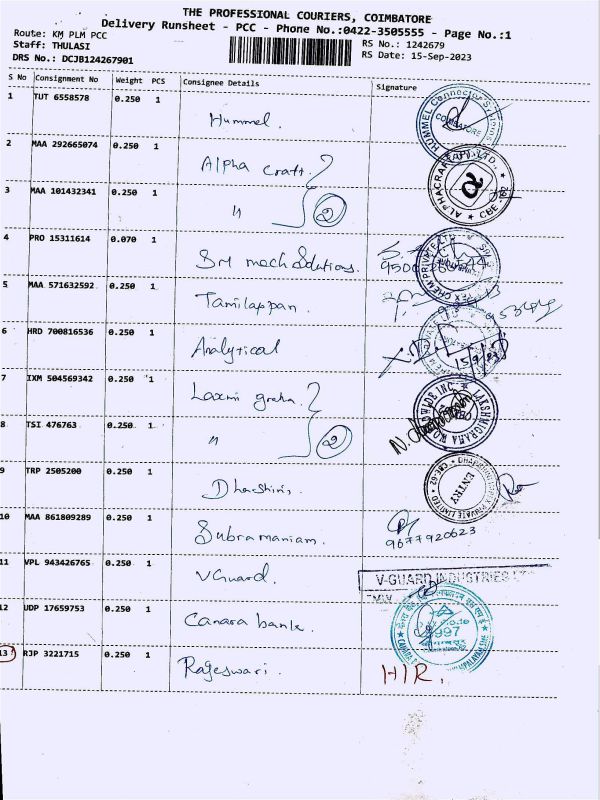 THE PROFESSIONAL COURIERS, COIMBATORE
Delivery Runsheet - PCC - Phone No.:0422-3505555 - Page No.:1
Route: KM PLM PCC
Staff: THULASI
DRS No.: DCJB124267901
RS No.: 1242679
RS Date: 15-Sep-2023
S No Consignment No Weight PCS Consignee Details Signature
1 TUT 6558578 0.250 1 Hummel.
HUMMEL Connector Systems COIMBATORE
2 MAA 292665074 0.250 1 Alpha craft.
ALPHACRAFT PVT. LTD., ★ CBE
3 MAA 101432341 0.250 1 " 2
4 PRO 15311614 0.070 1 Sri mech Solutions.
5 MAA 571632592 0.250 1 Tamilappan.
6 HRD 700816536 0.250 1 Analytical
15/9/23
7 IXM 504569342 0.250 1 Laxmi graha.
LAKSHMIGRAHA WORLDWIDE INC
8 TSI 476763 0.250 1 " 2
9 TRP 2505200 0.250 1 Dharshini.
ENTRY
10 MAA 861809289 0.250 1 Subramaniam.
9677920623
11 VPL 943426765 0.250 1 VGuard.
V-GUARD INDUSTRIES LTD
12 UDP 17659753 0.250 1 Canara bank.
13 RJP 3221715 0.250 1 Rajeswari. HIR.